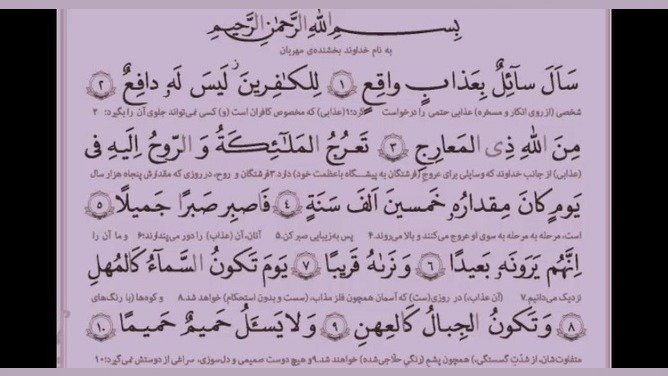 بِسـمِ اللهِ الرَّحمٰنِ الرَّحیمِ
به نام خداوند بخشنده‌ی مهربان
سَاَلَ سآئِلٌ بِعَذابٍ واقِعٍ ۱ لِلکٰفِرینَ لَیسَ لَهٗ دافِعٌ ۲
شخصی (از روی انکار و مسخره) عذابی حتمی را درخواست کرد؛۱(عذابی) که مخصوص کافران است (و) کسی نمی‌تواند جلوی آن را بگیرد؛ ۲
مِنَ اللهِ ذِی المَعارِجِ ۳ تَعرُجُ المَلٰٓئِکَةُ وَ الرّوحُ اِلَیهِ فی
(عذابی) از جانب خداوند که وسایلی برای عروج (فرشتگان به پیشگاه باعظمت خود) دارد.۳فرشتگان و روح، در روزی که مقدارش پنجاه هزار سال
یَومٍ کانَ مِقدارُهٗ خَمسینَ اَلفَ سَنَةٍ ۴ فَاصبِر صَبرًا جَمیلًا ۵
است، مرحله به مرحله به سوی او عروج می‌کنند و بالا می‌روند.۴ پس به‌زیبایی صبر کن.۵ آنان، آن (عذاب) را دور می‌پندارند؛۶ و ما آن را
اِنَّهُم یَرَونَهٗ بَعیدًا ۶ وَ نَرٰىهُ قَریبًا ۷ یَومَ تَکونُ السَّمآءُ کَالمُهلِ
نزدیک می‌دانیم.۷ (آن عذاب، در روزی‌ست) که آسمان همچون فلز مذاب، (سست و بدون استحکام) خواهد شد.۸ و کوه‌ها (با رنگ‌های
۸ وَ تَکونُ الجِبالُ کَالعِهنِ ۹ وَ لا یَسـَٔلُ حَمیمٌ حَمیمًا ۱۰
متفاوت‌شان، از شدّتِ گسستگی)، همچون پشمِ (رنگیِ حلاجی‌شده) خواهند شد.۹و هیچ دوست صمیمی و دل‌سوزی، سراغی از دوستش نمی‌گیرد؛۱۰